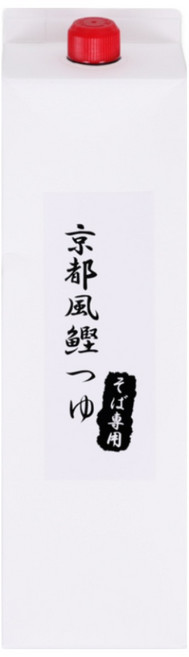 京都風鰹つゆ
そば専用